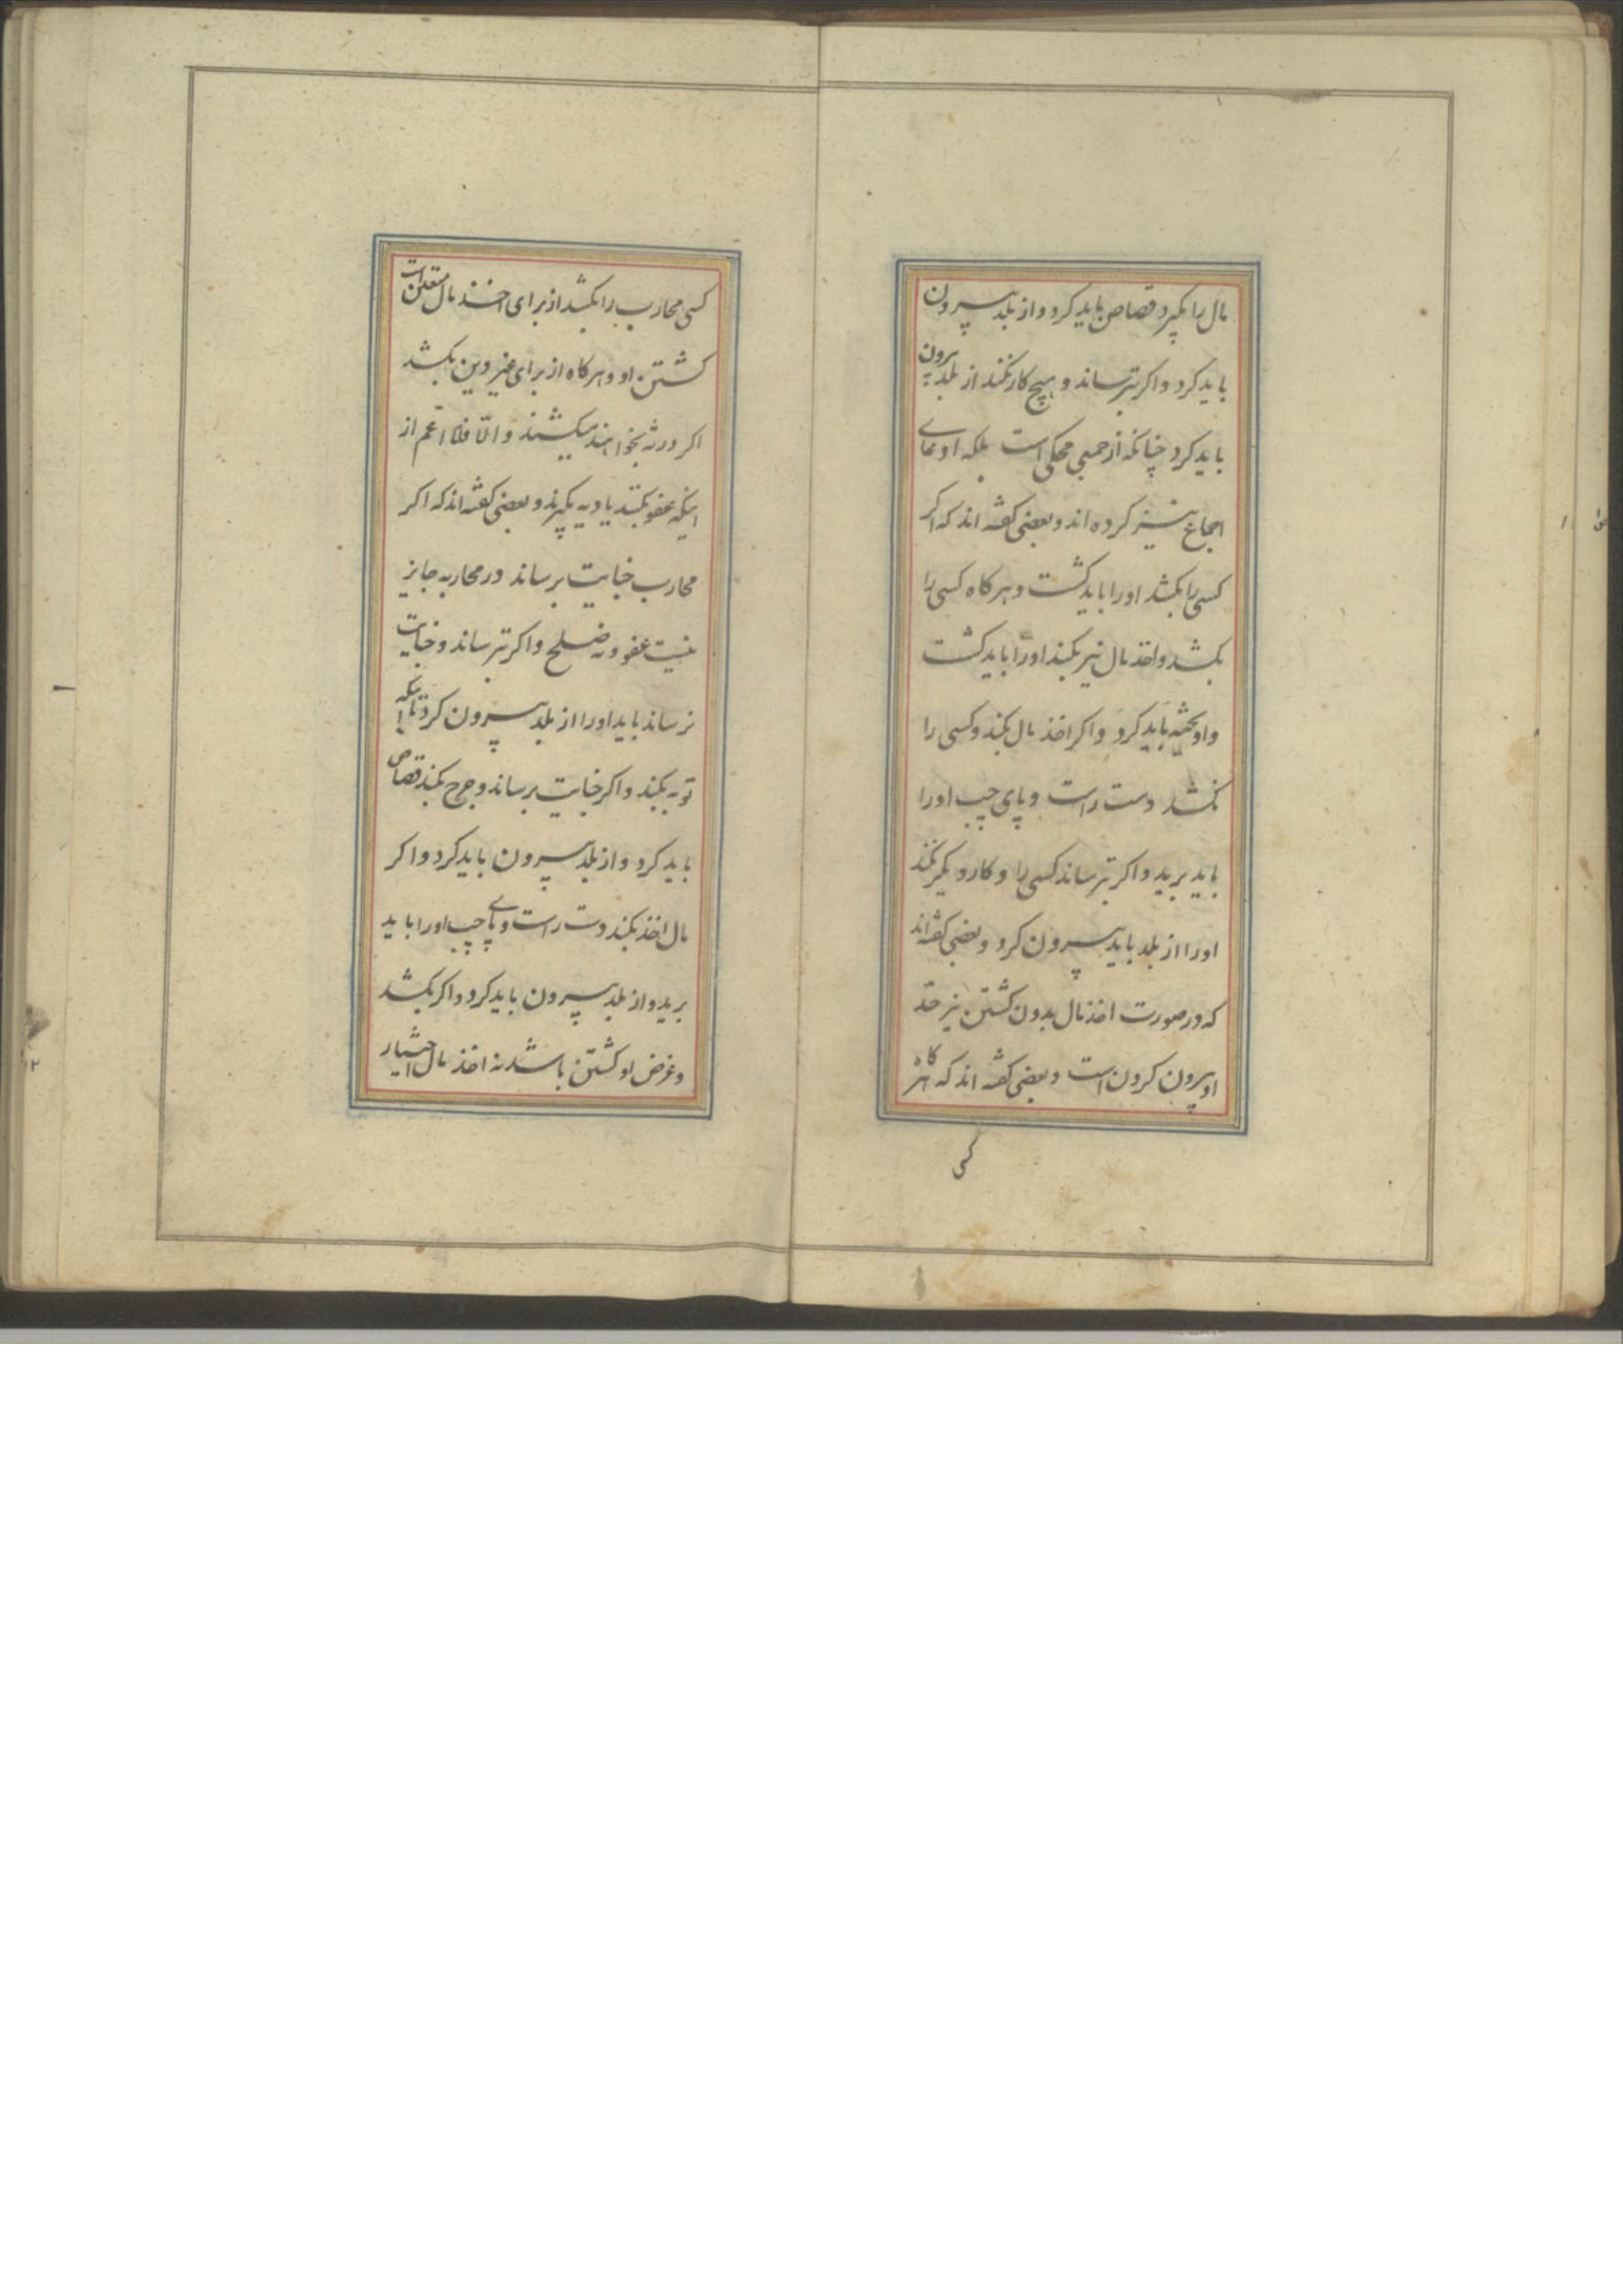 مال را بگیرد قصاص باید کرد و از بلد بیرون
باید کرد و اگر بترساند و هیچ کار نکند از بلد بیرون
باید کرد چنانکه از جمعی محکی است بلکه ادعای
اجماع نیز کرده اند و بعضی گفته اند که اگر
کسی را بکشد او را باید کشت و هرگاه کسی را
بکشد و اخذ مال نیز بکند او را باید کشت
و او باید کرد و اگر اخذ مال بکند و کسی را
نکشد دست راست و پای چپ او را
باید برید و اگر بترساند کسی را و کار دیگر نکند
او را از بلد باید بیرون کرد و بعضی گفته اند
که در صورت اخذ مال بدون کشتن نیز حدّ
او بیرون کردن است و بعضی گفته اند که هرگاه
کسی
کسی محارب را بکشد از برای اخذ مال متعین است
کشتن او و هرگاه از برای غیر این بکشد
اگر ورثه بخواهند میکشند و الّا فلا اعمّ از
اینکه عفو بکنند یا دیه بگیرند و بعضی گفته اند که اگر
محارب جنایت برساند در محاربه جایز
نیست عفو و نه صلح و اگر بترساند و جنایت
نرساند باید او را از بلد بیرون کرد تا اینکه
توبه بکند و اگر جنایت برساند و جرح بکند قصاص
باید کرد و از بلد بیرون باید کرد و اگر
مال اخذ بکند دست راست و پای چپ او را باید
برید و از بلد بیرون باید کرد و اگر بکشد
و غرض او کشتن باشد نه اخذ مال اختیار